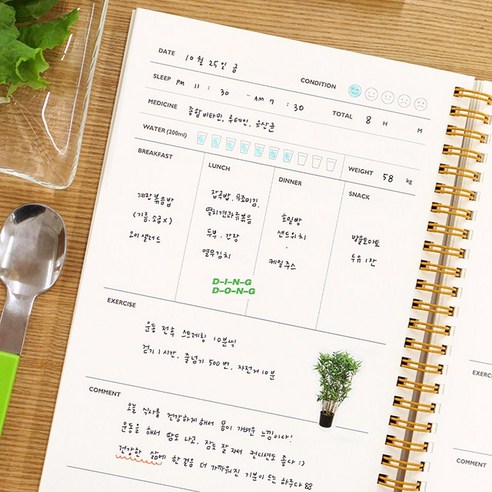 DATE 10월 25일 금
CONDITION
SLEEP PM 11 : 30 - AM 7 : 30 TOTAL 8 H M
MEDICINE 종합비타민, 루테인, 유산균
WATER (200ml)
WEIGHT 58 kg
BREAKFAST
계란볶음밥
(기름, 소금 X)
오이샐러드
LUNCH
잡곡밥, 무조미김,
멸치견과류볶음
두부, 간장
열무김치
DINNER
호밀빵
샌드위치
케일주스
SNACK
방울토마토
두유 1잔
D-I-N-G
D-O-N-G
EXERCISE
운동 전후 스트레칭 10분씩
걷기 1시간, 줄넘기 500번, 자전거 10분
COMMENT
오늘 식사를 건강하게 해서 몸이 가벼운 느낌이다!
운동을 해서 땀도 나고, 잠도 잘 자서 컨디션도 좋다 :)
건강한 삶에 한 걸음 더 가까워진 기분이 드는 하루다
EXERC
COMM